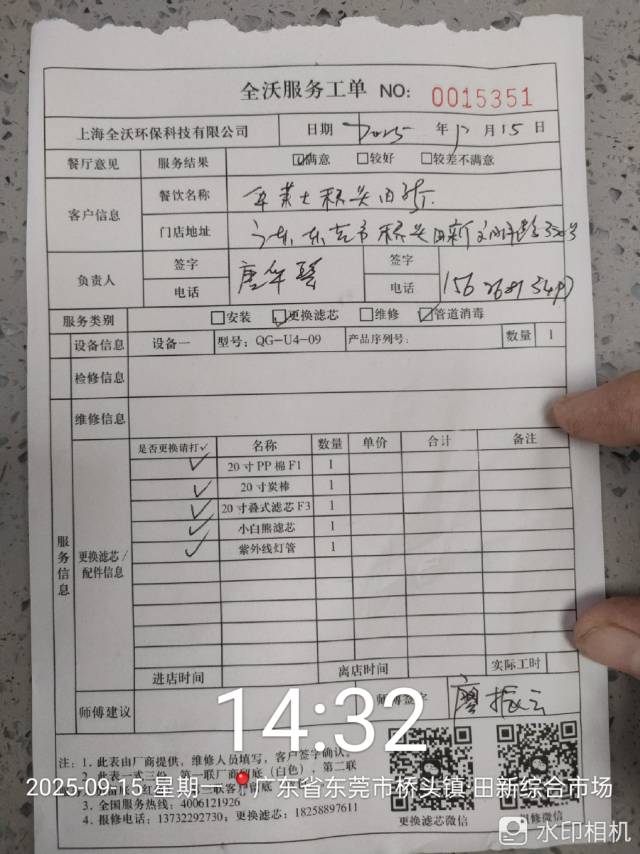 全沃服务工单 NO: 0015351
上海全沃环保科技有限公司 日期 2025 年 月 15 日
餐厅意见 服务结果 ☑满意 □较好 □较差不满意
客户信息 餐饮名称 桥头田新
门店地址 广东 东莞市 桥头田新
负责人 签字 签字
电话 电话 156
服务类别 □安装 ☑更换滤芯 □维修 ☑管道消毒
设备信息 设备一 型号: QG-U4-09 产品序列号: 数量 1
检修信息
维修信息
服务信息
更换滤芯/配件信息
是否更换请打√ 名称 数量 单价 合计 备注
✓ 20寸PP棉F1 1
✓ 20寸炭棒 1
✓ 20寸叠式滤芯F3 1
✓ 小白熊滤芯 1
✓ 紫外线灯管 1
进店时间 离店时间 实际工时
师傅建议 签字 振云
14:32
注: 1. 此表由厂商提供, 维修人员填写, 客户签字确认。
2025-09-15 星期一 广东省东莞市桥头镇·田新综合市场
3. 全国服务热线: 4006121926
4. 报修电话: 13732292730; 更换滤芯: 18258897611
更换滤芯微信
水印相机